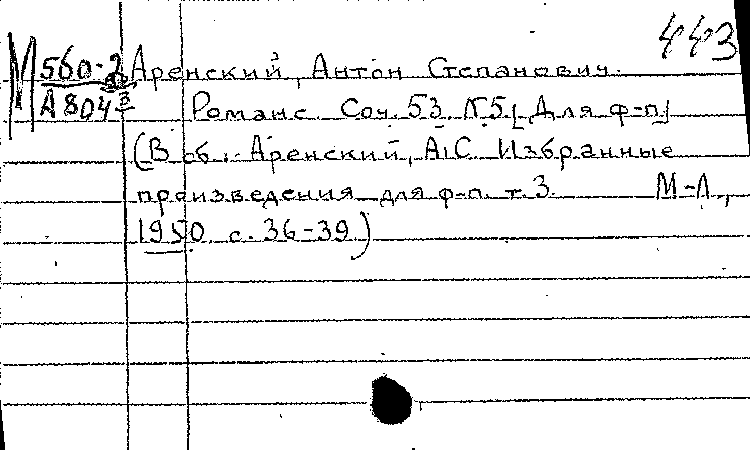 443
М 560-2 Аренский, Антон Степанович.
А 804 Романс. Соч. 53 №5 [Для ф-п]
(В сб.: Аренский, А.С. Избранные
произведения для ф-п. т. 3. М-Л,
1950 с. 36-39)